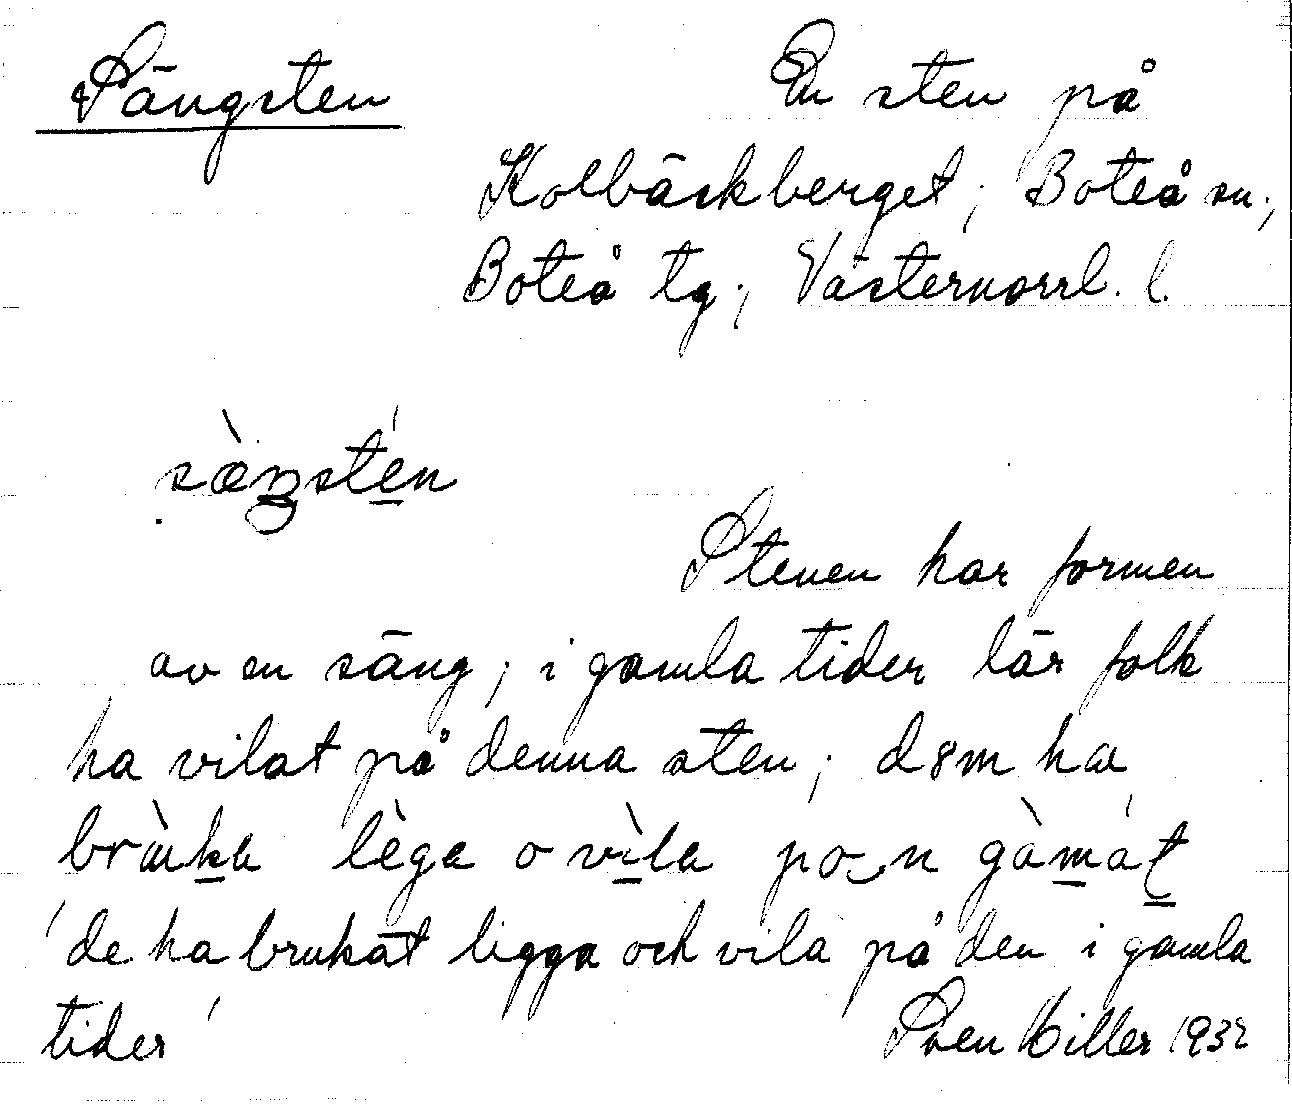 Sängsten En sten på
Kolbäckberget, Boteå sn.,
Boteå tg., Västernorrl. l.
sæ̀ŋstén
Stenen har formen
av en säng; i gamla tider lär folk
ha vilat på denna sten; dɜm ha
lèga o vìla po‿n
'de ha brukat ligga och vila på den i gamla
tider'
Sven Hiller 1932